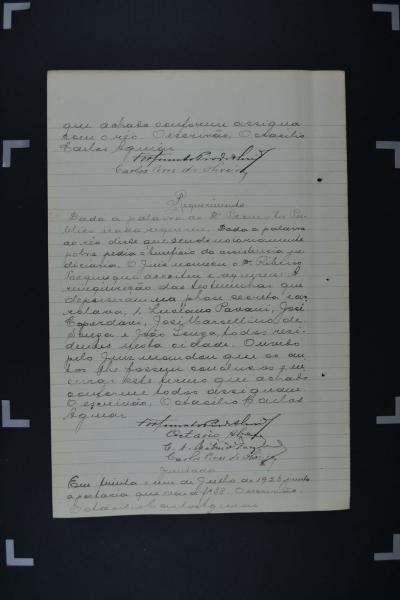 que achado conforme assigna
com o réo. O escrivão, Octacilio
Carlos Aguiar
Carlos Pires de Oliveira
Requerimento
Dada a palavra ao Dr. Promotor Pu-
blico nada requereu. Dada a palavra
ao réo disse que sendo notoriamente
pobre pedia o beneficio da assistencia ju-
diciaria. O Juiz nomeou o Dr. Ribeiro
que acceitou e requereu a
reinquirição das testemunhas que
depuseram na phase secreta
1. Luciano Pavani, José
José Marcellino de
Souza e João Souza, todos resi-
dentes nesta cidade. Ouvido
pelo Juiz mandou que os au-
tos lhe fossem conclusos
este termo que achado
conforme todos assignam.
O escrivão, Octacilio Carlos
Aguiar
Octavio
Carlos Pires de Oliveira
Juntada
Em trinta e um de Julho de 1925 junto
a portaria que vae a fs 38. O escrivão
Octacilio Carlos Aguiar